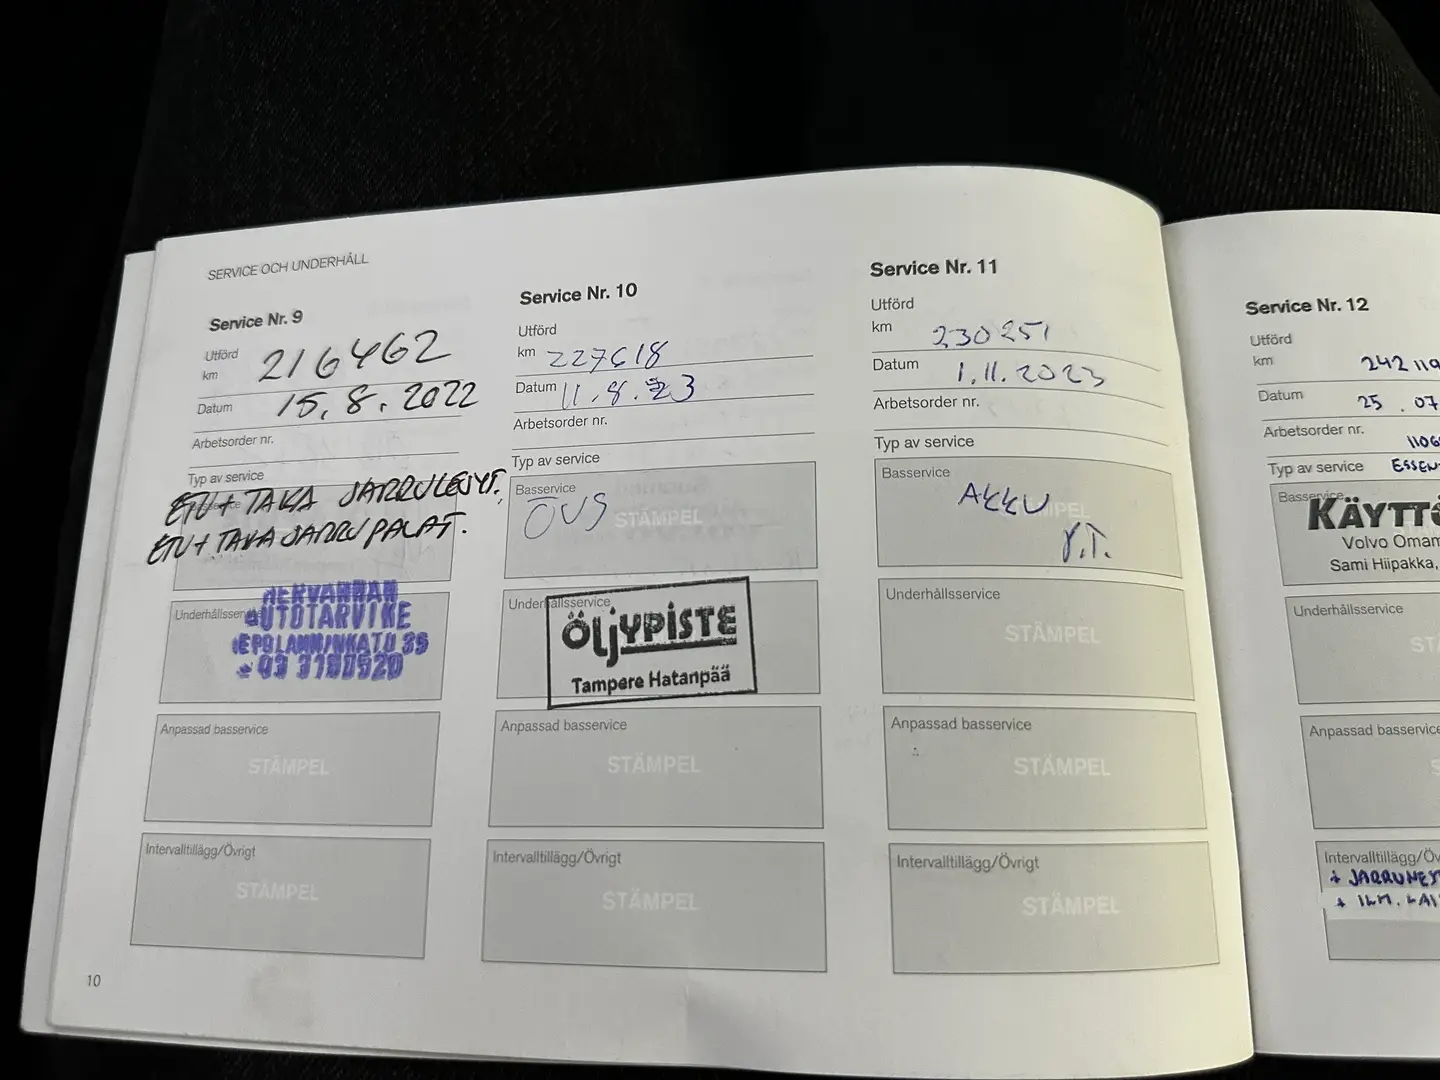 SERVICE OCH UNDERHÅLL
Service Nr. 9
Utförd
km 216462
Datum 15.8.2022
Arbetsorder nr.
Typ av service
ETU + TAKA JARRULEVYT.
ETU + TAKA JARRUPALAT.
Underhållsservice
HERVANNAN
AUTOTARVIKE
03 3180520
Anpassad basservice
STÄMPEL
Intervalltillägg/Övrigt
STÄMPEL
10
Service Nr. 10
Utförd
km 227618
Datum 11.8.23
Arbetsorder nr.
Typ av service
Basservice
ÖVS STÄMPEL
Underhållsservice
ÖLJYPISTE
Tampere Hatanpää
Anpassad basservice
STÄMPEL
Intervalltillägg/Övrigt
STÄMPEL
Service Nr. 11
Utförd
km 230251
Datum 1.11.2023
Arbetsorder nr.
Typ av service
Basservice
AKKU MPEL
Y.T.
Underhållsservice
STÄMPEL
Anpassad basservice
STÄMPEL
Intervalltillägg/Övrigt
STÄMPEL
Service Nr. 12
Utförd
km 242119
Datum 25.07
Arbetsorder nr.
1106
Typ av service ESSEN
Basservice
KÄYTTÖ
Volvo Omam
Sami Hiipakka,
Underhållsservice
ST
Anpassad basservice
S
Intervalltillägg/Öv
+ JARRUNEST
+ ILM. LAI